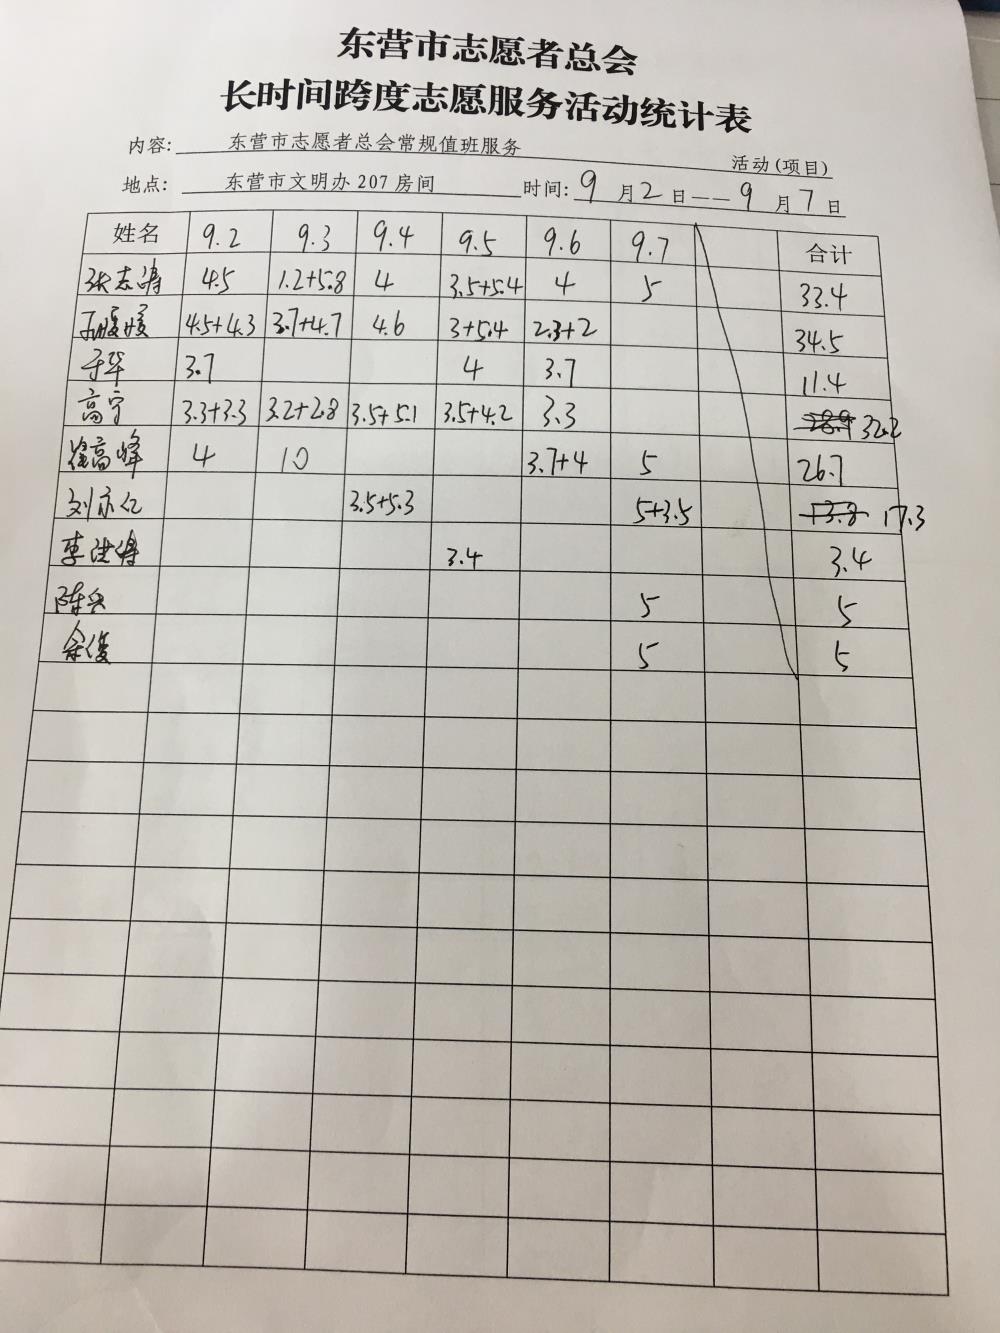 东营市志愿者总会
长时间跨度志愿服务活动统计表
内容: 东营市志愿者总会常规值班服务 活动(项目)
地点: 东营市文明办 207 房间 时间: 9 月 2 日——9 月 7 日
姓名 9.2 9.3 9.4 9.5 9.6 9.7 合计
张志涛 4.5 1.2+5.8 4 3.5+5.4 4 5 33.4
4.5+4.3 3.7+4.7 4.6 3+5.4 2.3+2 34.5
于华 3.7 4 3.7 11.4
高宁 3.3+3.3 3.2+2.8 3.5+5.1 3.5+4.2 3.3 28.9 32.2
崔高峰 4 10 3.7+4 5 26.7
刘亦仁 3.5+5.3 5+3.5 13.8 17.3
李洪涛 3.4 3.4
陈兵 5 5
余俊 5 5